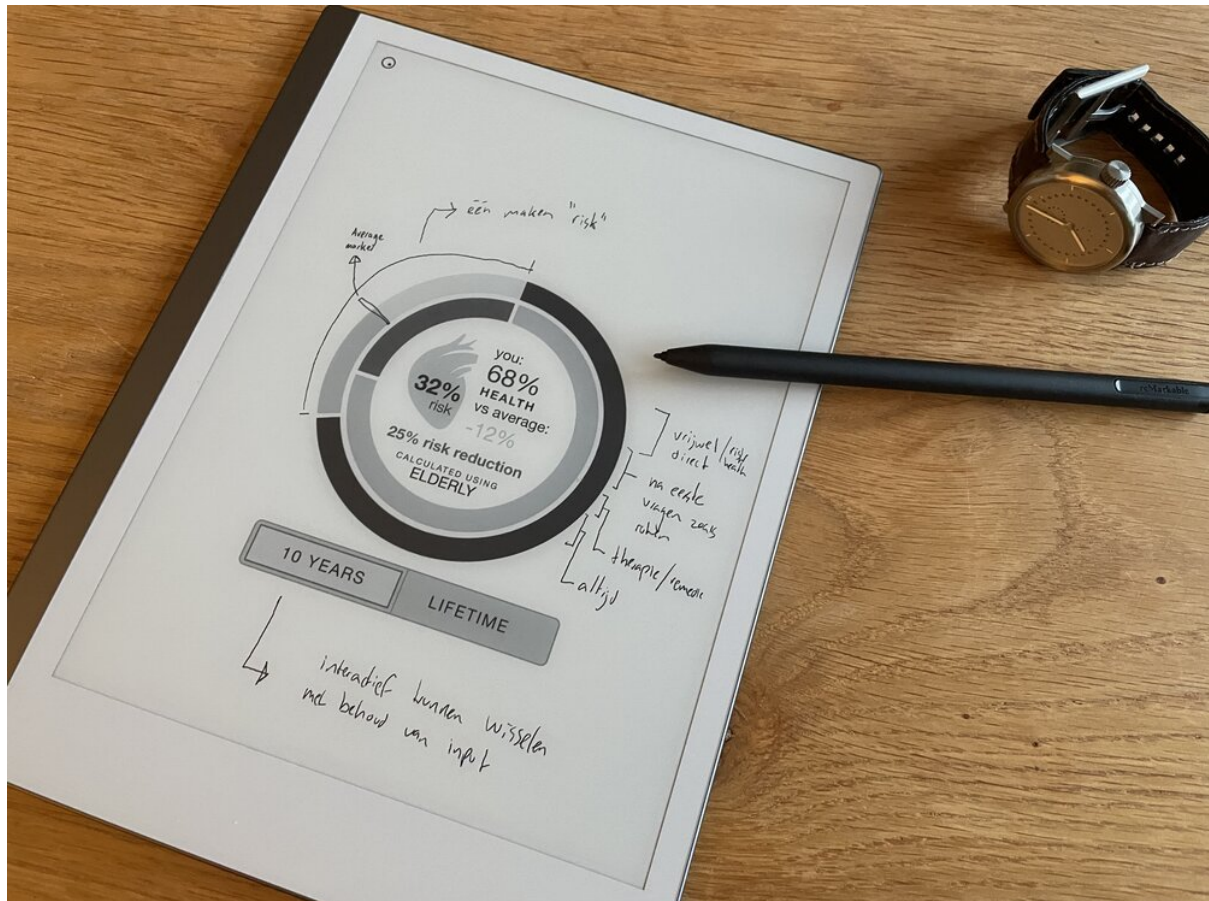 één maken "risk"
Average
market
you:
68%
HEALTH
vs average:
-12%
32%
risk
25% risk reduction
CALCULATED USING
ELDERLY
vrijwel/risk
direct health
na eerste
vragen zoals
roken
therapie/remedie
altijd
10 YEARS
LIFETIME
interactief kunnen wisselen
met behoud van input
reMarkable